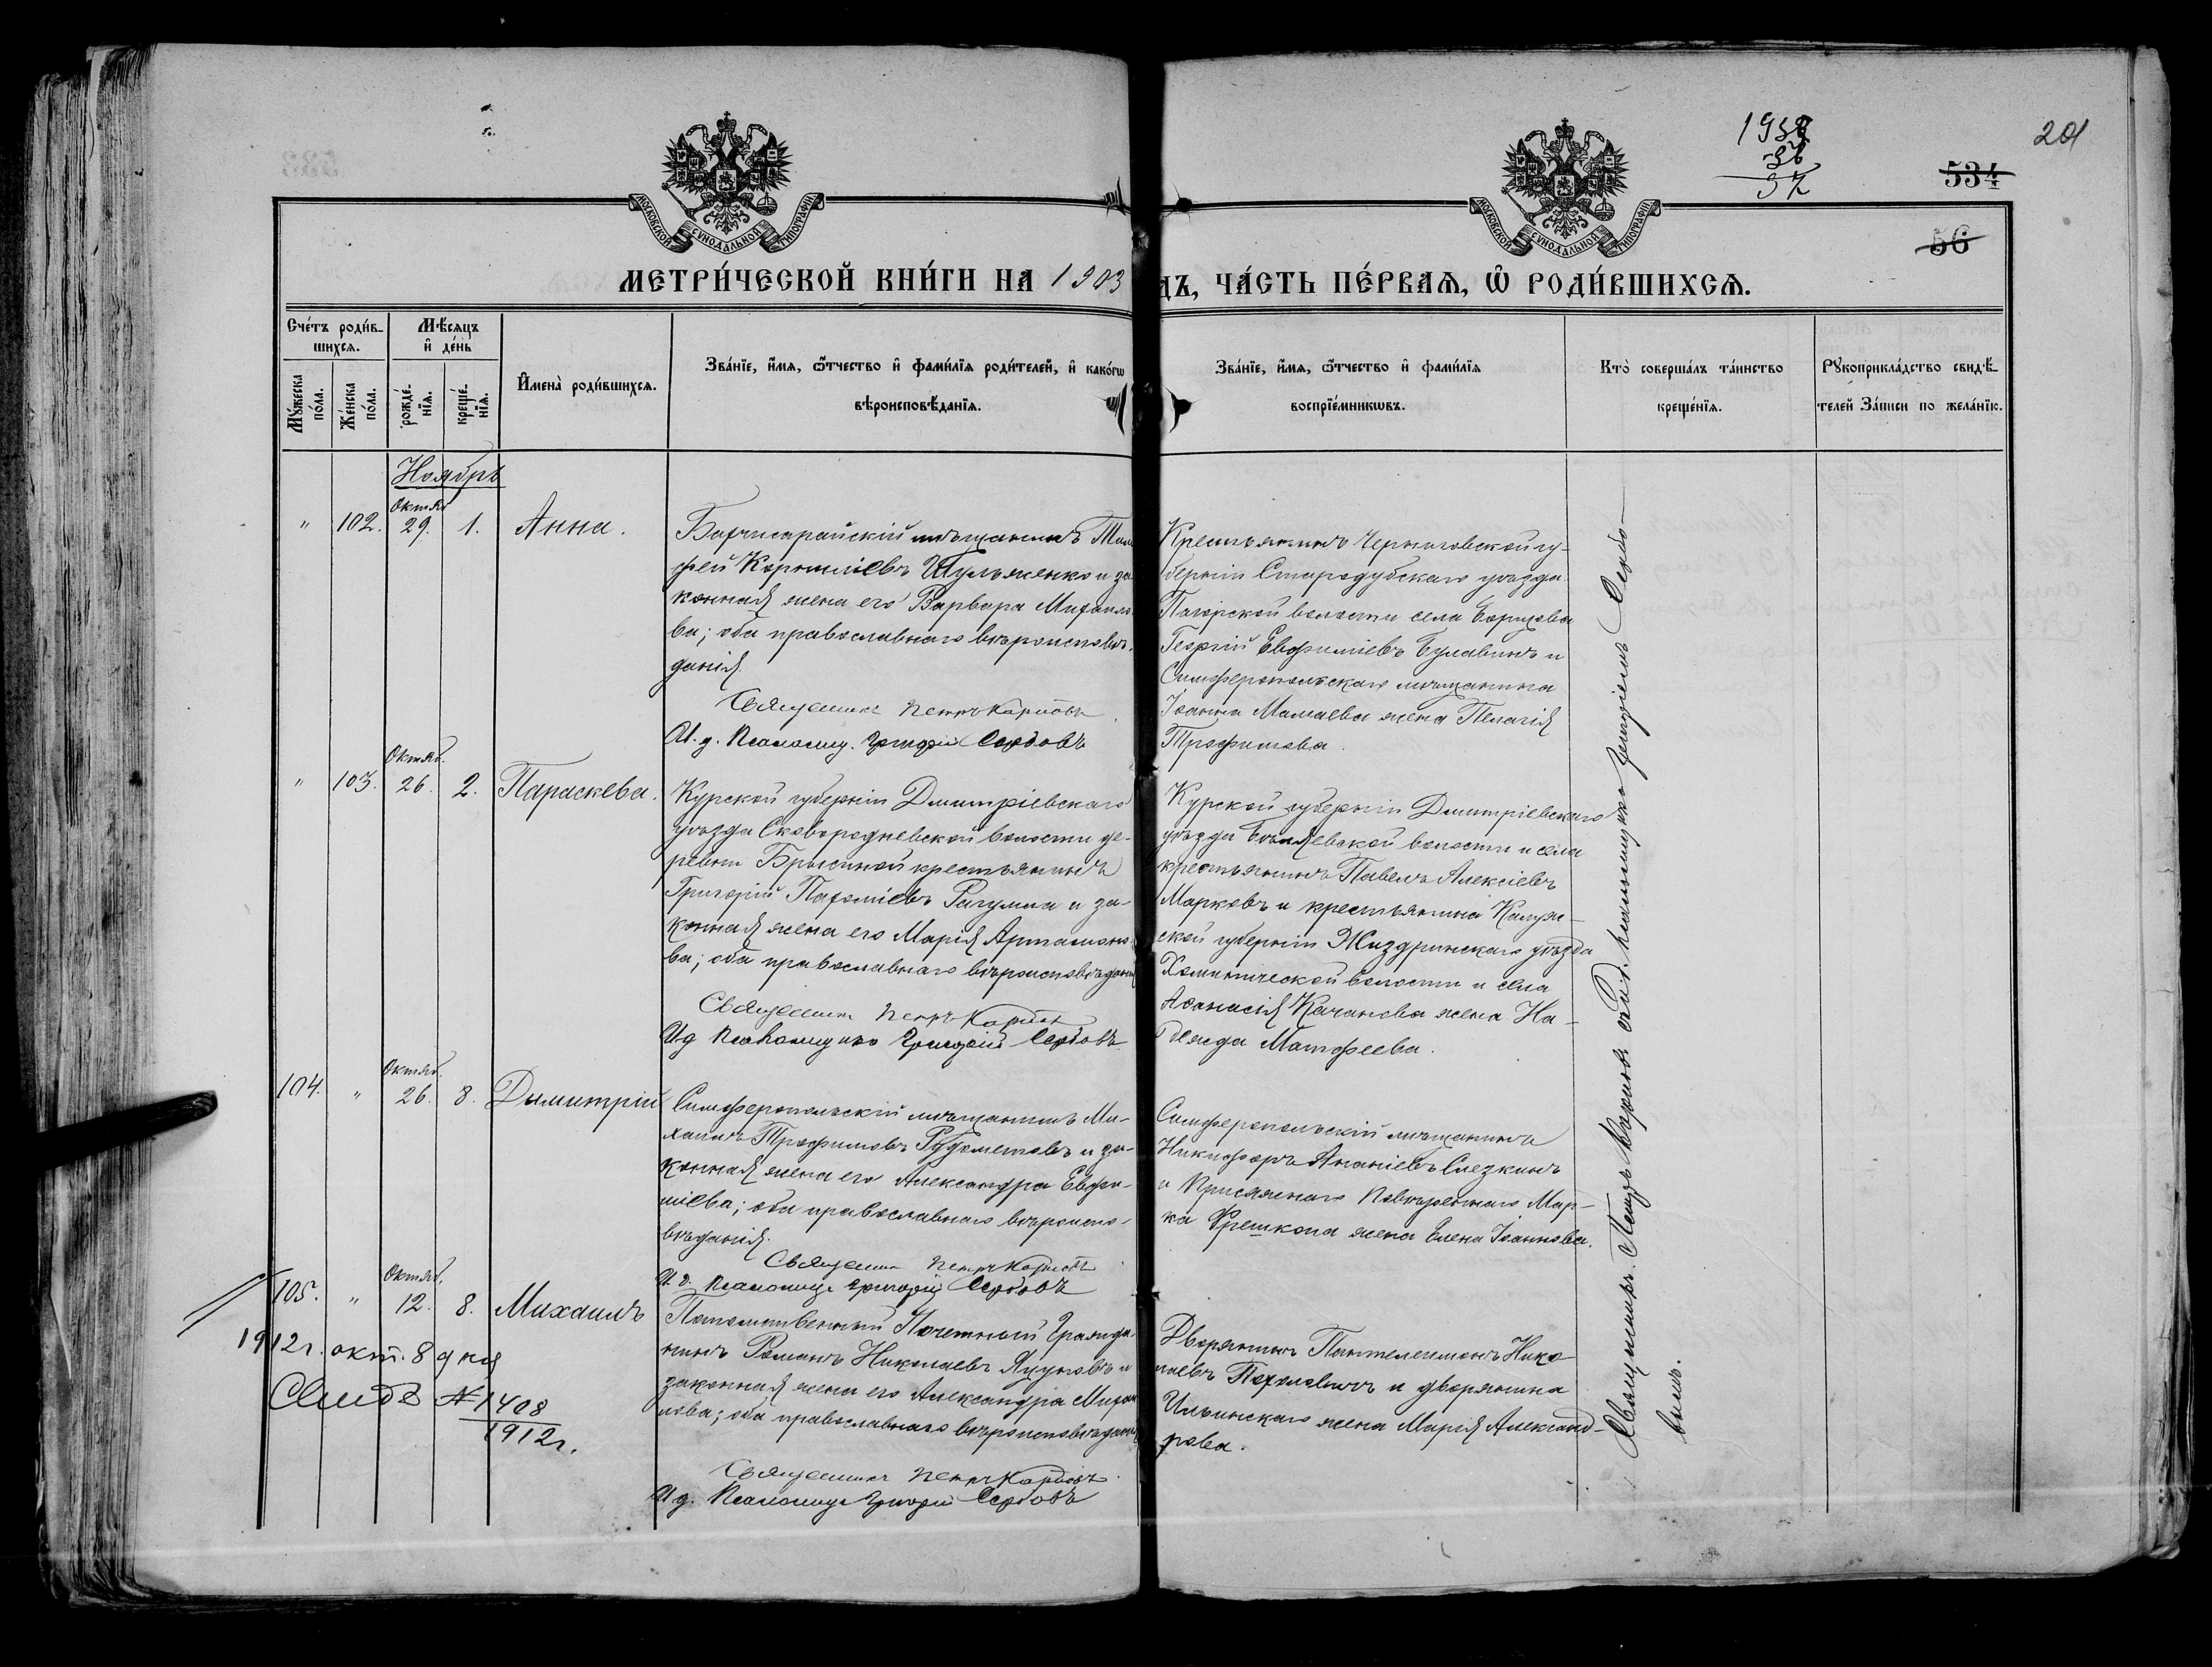 201
1938
36
37
534
56
МОСКОВСКОЙ СѴНОДАЛЬНОЙ ТИПОГРАФІИ
МОСКОВСКОЙ СѴНОДАЛЬНОЙ ТИПОГРАФІИ
МЕТРИ́ЧЕСКОЙ КНИ́ГИ НА 1903
ДЪ, ЧА́СТЬ ПЕ́РВАѦ, Ѽ РОДИ́ВШИХСѦ.
Сче́тъ роди́в-
шихсѧ.
Мѣ́сѧцъ
и҆ де́нь
Мꙋ́жеска по́ла.
Же́нска по́ла.
рожде́-
нїѧ.
креще́-
нїѧ.
И҆мена̀ роди́вшихсѧ.
Зва́нїе, и҆́мѧ, ѻ҆́тчество и҆ фами́лїѧ роди́телей, и҆ како́гѡ
вѣроисповѣ́данїѧ.
Зва́нїе, и҆́мѧ, ѻ҆́тчество и҆ фами́лїѧ
воспрїе́мникѡвъ.
Кто̀ соверша́лъ та́инство
креще́нїѧ.
Рꙋкоприкла́дство свидѣ́-
телей За́писи по жела́нїю.
Ноябрь
" 102. Октяб. 29. 1. Анна.
Бахчисарайскій мѣщанинъ Тим
фей Корниліевъ Шульженко и за
конная жена его Варвара Михаило
ва; оба православнаго вѣроисповѣ-
данія
Священникъ Петръ Карповъ
И. д. Псаломщ. Григорій Сербовъ
Крестьянинъ Черниговской гу-
берніи Стародубскаго уѣзда
Погорской волости села Борщова
Георгій Евфиміевъ Булавинъ и
Симферопольскаго мѣщанина
Іоанна Мамаева жена Пелагія
Трофимова.
" 103. Октяб. 26. 2. Параскева.
Курской губерніи Дмитріевскаго
уѣзда Сковородневской волости де-
ревни Брысиной крестьянинъ
Григорій Пахоміевъ Рагулина и за-
конная жена его Марія Артамоно-
ва; оба православнаго вѣроисповѣданія
Священникъ Петръ Карповъ
И д Псаломщика Григорій Сербовъ
Курской губерніи Дмитріевскаго
уѣзда волости и села
крестьянинъ Павелъ Алексіевъ
Марковъ и крестьянина Калуж-
ской губерніи Жиздринскаго уѣзда
волости и села
Аѳанасія Качанова жена На-
дежда Матфеева.
104. " Октяб. 26. 8. Дымитрій
Симферопольскій мѣщанинъ Ми-
хаилъ Трофимовъ Рудометовъ и за-
конная жена его Александра Евфи-
міева; оба православнаго вѣроиспо-
вѣданія.
Священникъ Петръ Карповъ
И. д. Псаломщ. Григорій Сербовъ
Симферопольскій мѣщанинъ
Никифоръ Ананіевъ Слезкинъ
и Присяжнаго Повѣреннаго Мар-
ка жена Елена Іоаннова.
105. " Октяб. 12. 8. Михаилъ
Потомственный Почетный Гражда-
нинъ Романъ Николаевъ Яцуновъ и
законная жена его Александра Михаи
лова; оба православнаго вѣроисповѣданія
Священникъ Петръ Карповъ
И д. Псаломщ. Григорій Сербовъ
Дворянинъ Пантелеимонъ Нико-
лаевъ и дворянина
Ильинскаго жена Марія Александ-
рова.
1912г. окт. 8 дня
Свид. № 1408
1912г.
Священникъ Петръ Карповъ съ и. д. псаломщика Григоріемъ Сербо-
вымъ.